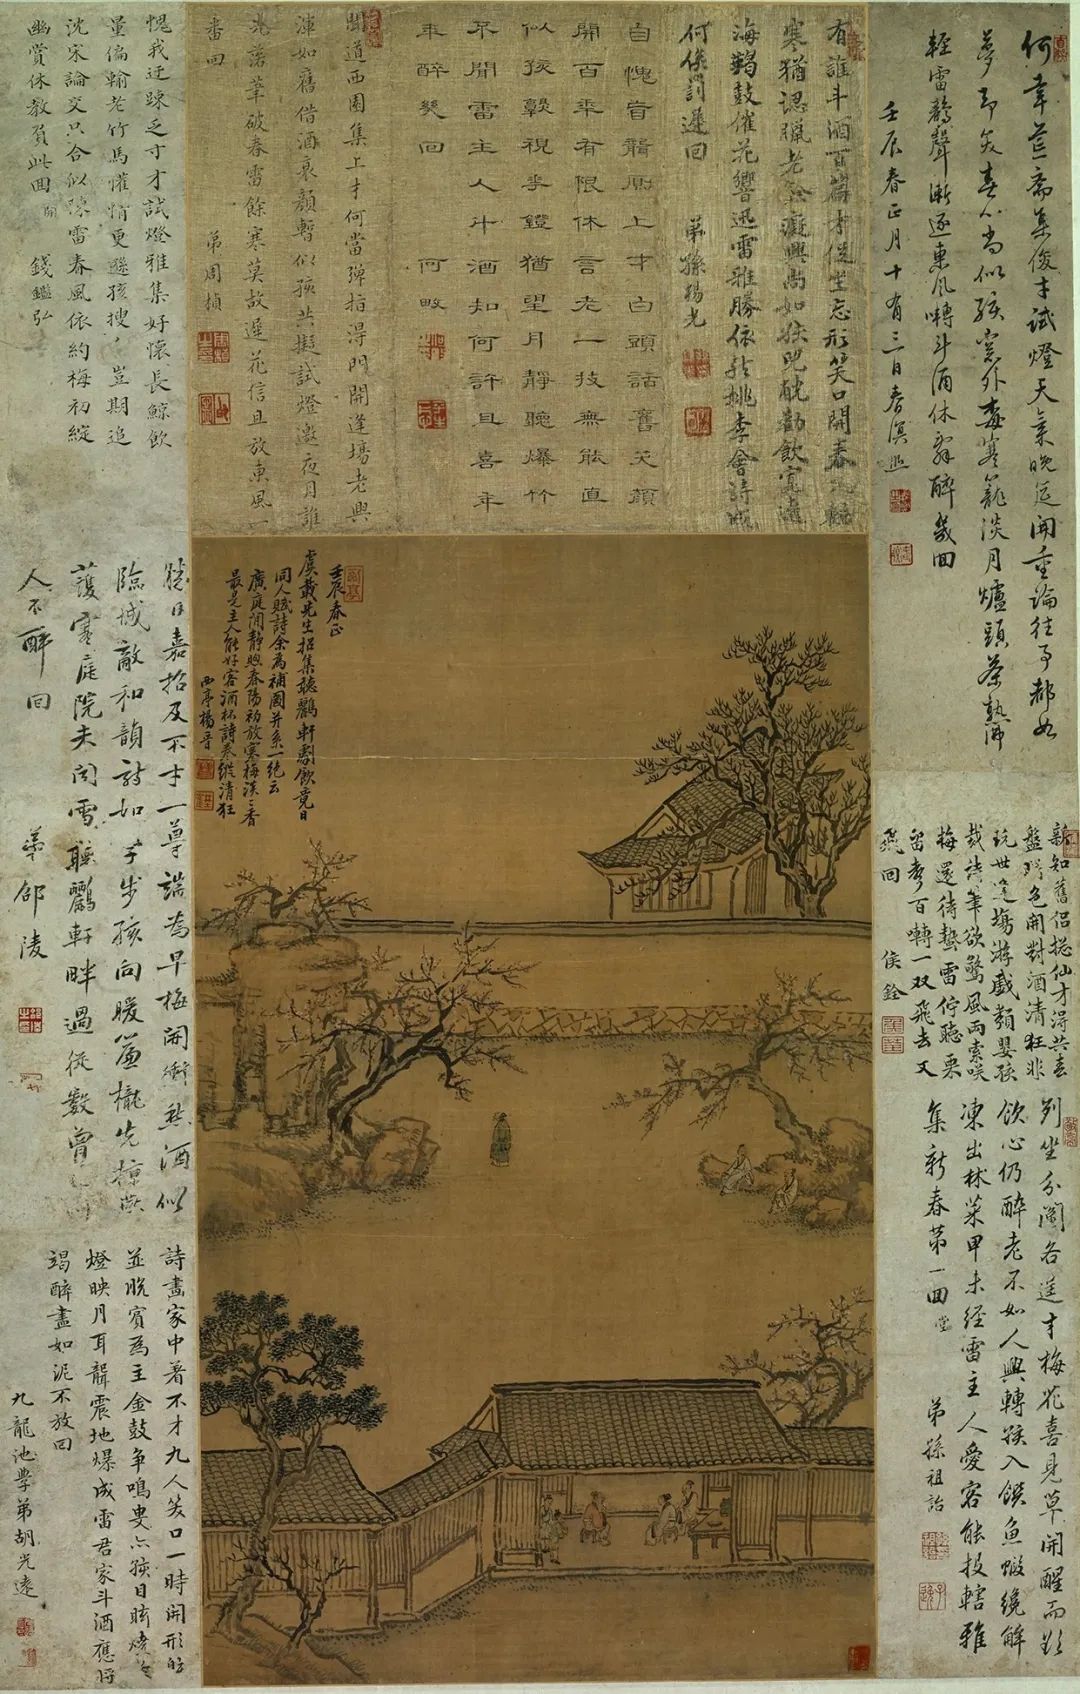 何幸荒齋集俊才試燈天氣晚筵開重論往事都如
夢即矣春人尚似孩窗外毒寒籠淡月爐頭茶熟沸
輕雷鵲聲漸逐東風囀斗酒休辭醉幾回
壬辰春正月十有三日春溟
有誰斗酒百篇才促坐忘形笑口開春
寒猶認臘老
癡興尚如孩兕觥勸飲寬滄
海羯鼓催花響迅雷雅勝依然桃李會詩
何俟罰遲回
弟孫揚光
自愧盲聾廁上才白頭話舊笑顏
開百年有限休言老一技無能直
似孩縠視華鐙猶望月靜聽爆竹
不聞雷主人斗酒知何許且喜年
年醉幾回
何畋
聞道西園集上才何當彈指得門開逢場老興
渾如舊借酒衰顏暫似孩共擬試燈邀夜月誰
先落筆破春雷餘寒莫放遲花信且放東風一
番回
弟周楨
愧我迂疎乏寸才試燈雅集好懷長鯨飲
量偏輸老竹馬懽情更遜孩搜
豈期追
沈宋論交只合似陳雷春風依約梅初綻
幽賞休教負此回
開
錢鑑弘
壬辰春正
虞載先生招集聽鸝軒劇飲竟日
同人賦詩余為補圖并系一絕云
廣庭閒靜煦春陽初放寒梅淡淡香
最是主人能好客酒杯詩卷縱清狂
西亭楊晉
新知舊侶總仙才得共春
盤
色開對酒清狂非
玩世逢場游戲類嬰孩
裁詩筆欲驚風雨索咲
梅還待蟄雷佇聽栗
留聲百囀一双飛去又
飛回
侯銓
列坐分闈各逞才梅花喜見草開醒而
飲心仍醉老不如人興轉孩入饌魚蝦纔解
凍出林菜甲未經雷主人愛客能投轄雅
集新春第一回
弟孫祖詒
日嘉招及不才一尊端為早梅開衝寒酒似
臨城敵和韻詩如子步孩向暖簾櫳先
護寒庭院未聞雷聽鸝軒畔過從數曾
人不醉回
弟邵陵
詩畫家中著不才九人笑口一時開形
並脫賓為主金鼓爭鳴叟亦孩目眩燒
燈映月耳聾震地爆成雷君家斗酒應將
竭醉盡如泥不放回
九龍池學弟胡光遠